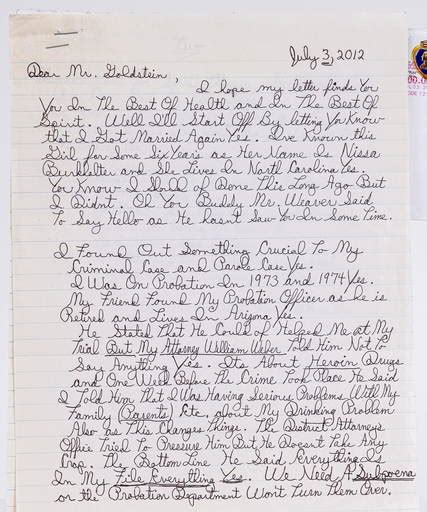 July 3, 2012
Dear Mr. Goldstein,
I hope my letter finds You
You In The Best Of Health and In The Best Of
Spirit. Well I'll Start Off By letting You Know
that I Got Married Again Yes. I've Known this
Girl for Some Six Years as Her Name Is Nissa
Burkhalter and She Lives In North Carolina Yes.
You Know I Should of Done This Long Ago But
I Didnt. Oh You Buddy Mr. Weaver Said
To Say Hello as He hasnt Saw You In Some Time.
I Found Out Something Crucial To My
Criminal Case and Parole Case Yes.
I Was On Probation In 1973 and 1974 Yes.
My Friend Found My Probation Officer as he is
Retired and Lives In Arizona Yes.
He Stated That He Could of Helped Me at My
Trial But My Attorney William Weber Told Him Not To
Say Anything Yes. Its About Heroin Drugs
and One Week Before The Crime Took Place He Said
I Told Him That I Was Having Serious Problems With My
Family (Parents) Etc. about My Drinking Problem
Also as This Changes Things. The District Attorneys
Office Tried To Pressure Him But He Doesnt Take Any
Crap. The Bottom Line He Said Everything Is
In My File Everything Yes. We Need A Subpoena
or the Probation Department Wont Turn Them Over.